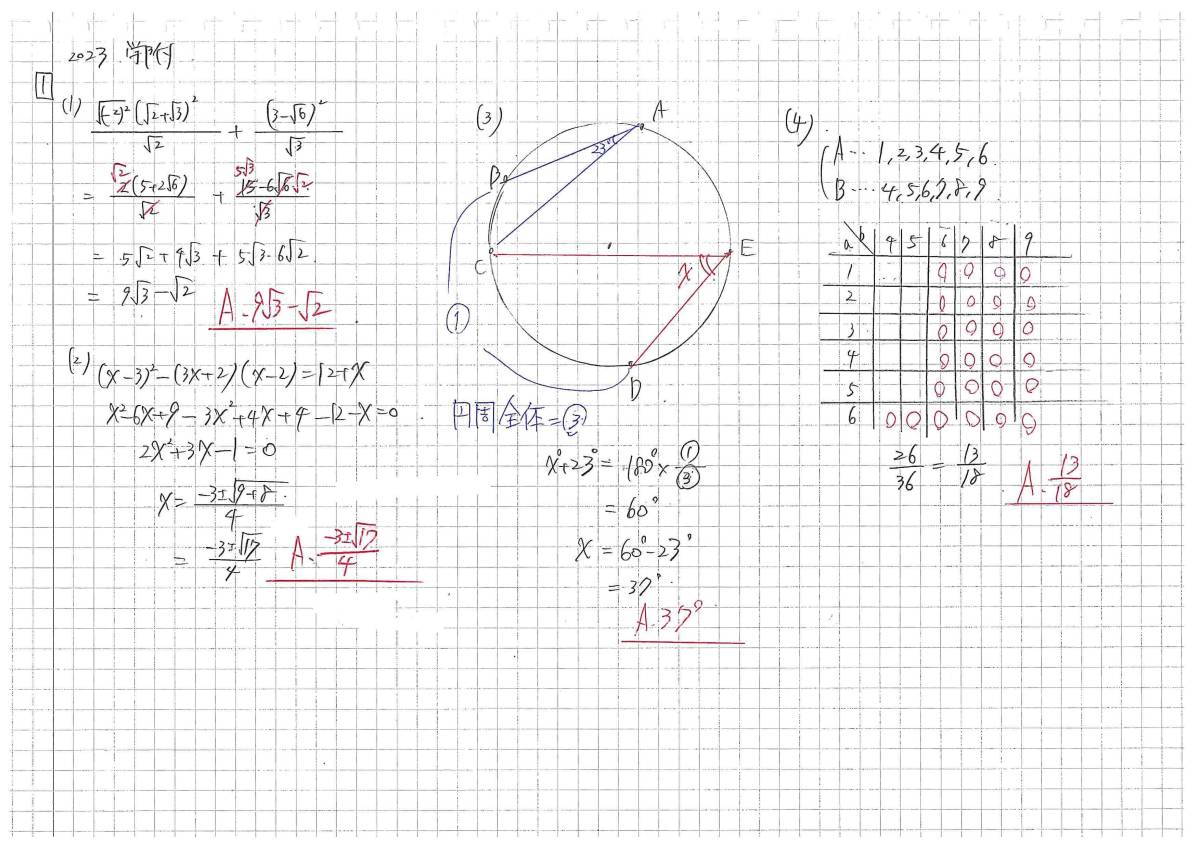 2023 学附
1
(1) \frac{\sqrt{(-2)^2}(\sqrt{2}+\sqrt{3})^2}{\sqrt{2}} + \frac{(3-\sqrt{6})^2}{\sqrt{3}}
= \frac{2(5+2\sqrt{6})}{\sqrt{2}} + \frac{15-6\sqrt{6}}{\sqrt{3}}
√2 5√3 √2
= 5√2+4√3 + 5√3-6√2
= 9√3-√2
A. 9√3-√2
(2) (x-3)²-(3x+2)(x-2)=12+x
x²-6x+9-3x²+4x+4-12-x=0
2x²+3x-1=0
x= \frac{-3±\sqrt{9+8}}{4}
= \frac{-3±\sqrt{17}}{4}
A. \frac{-3±\sqrt{17}}{4}
(3)
A
23°
B
C
E
x
①
D
円周全体=③
x°+23°= 180°× \frac{①}{③}
= 60°
x = 60°-23°
= 37°
A. 37°
(4)
A … 1,2,3,4,5,6
B … 4,5,6,7,8,9
a b 4 5 6 7 8 9
1 0 0 0 0
2 0 0 0 0
3 0 0 0 0
4 0 0 0 0
5 0 0 0 0
6 0 0 0 0 0 0
\frac{26}{36} = \frac{13}{18}
A. \frac{13}{18}